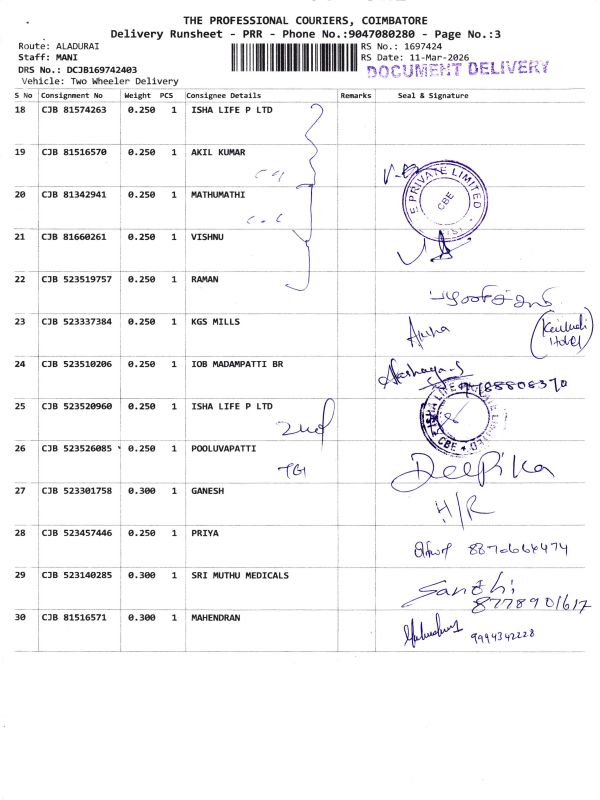 THE PROFESSIONAL COURIERS, COIMBATORE
Delivery Runsheet - PRR - Phone No.:9047080280 - Page No.:3
Route: ALADURAI RS No.: 1697424
Staff: MANI RS Date: 11-Mar-2026
DRS No.: DCJB169742403 DOCUMENT DELIVERY
Vehicle: Two Wheeler Delivery
S No Consignment No Weight PCS Consignee Details Remarks Seal & Signature
18 CJB 81574263 0.250 1 ISHA LIFE P LTD
19 CJB 81516570 0.250 1 AKIL KUMAR
E PRIVATE LIMITED
CBE
20 CJB 81342941 0.250 1 MATHUMATHI
21 CJB 81660261 0.250 1 VISHNU
22 CJB 523519757 0.250 1 RAMAN
23 CJB 523337384 0.250 1 KGS MILLS
Hotel
24 CJB 523510206 0.250 1 IOB MADAMPATTI BR Akshaya.S
25 CJB 523520960 0.250 1 ISHA LIFE P LTD
CBE
26 CJB 523526085 0.250 1 POOLUVAPATTI Deepika
27 CJB 523301758 0.300 1 GANESH H/R
28 CJB 523457446 0.250 1 PRIYA
29 CJB 523140285 0.300 1 SRI MUTHU MEDICALS Santhi
8778901617
30 CJB 81516571 0.300 1 MAHENDRAN 9994342228